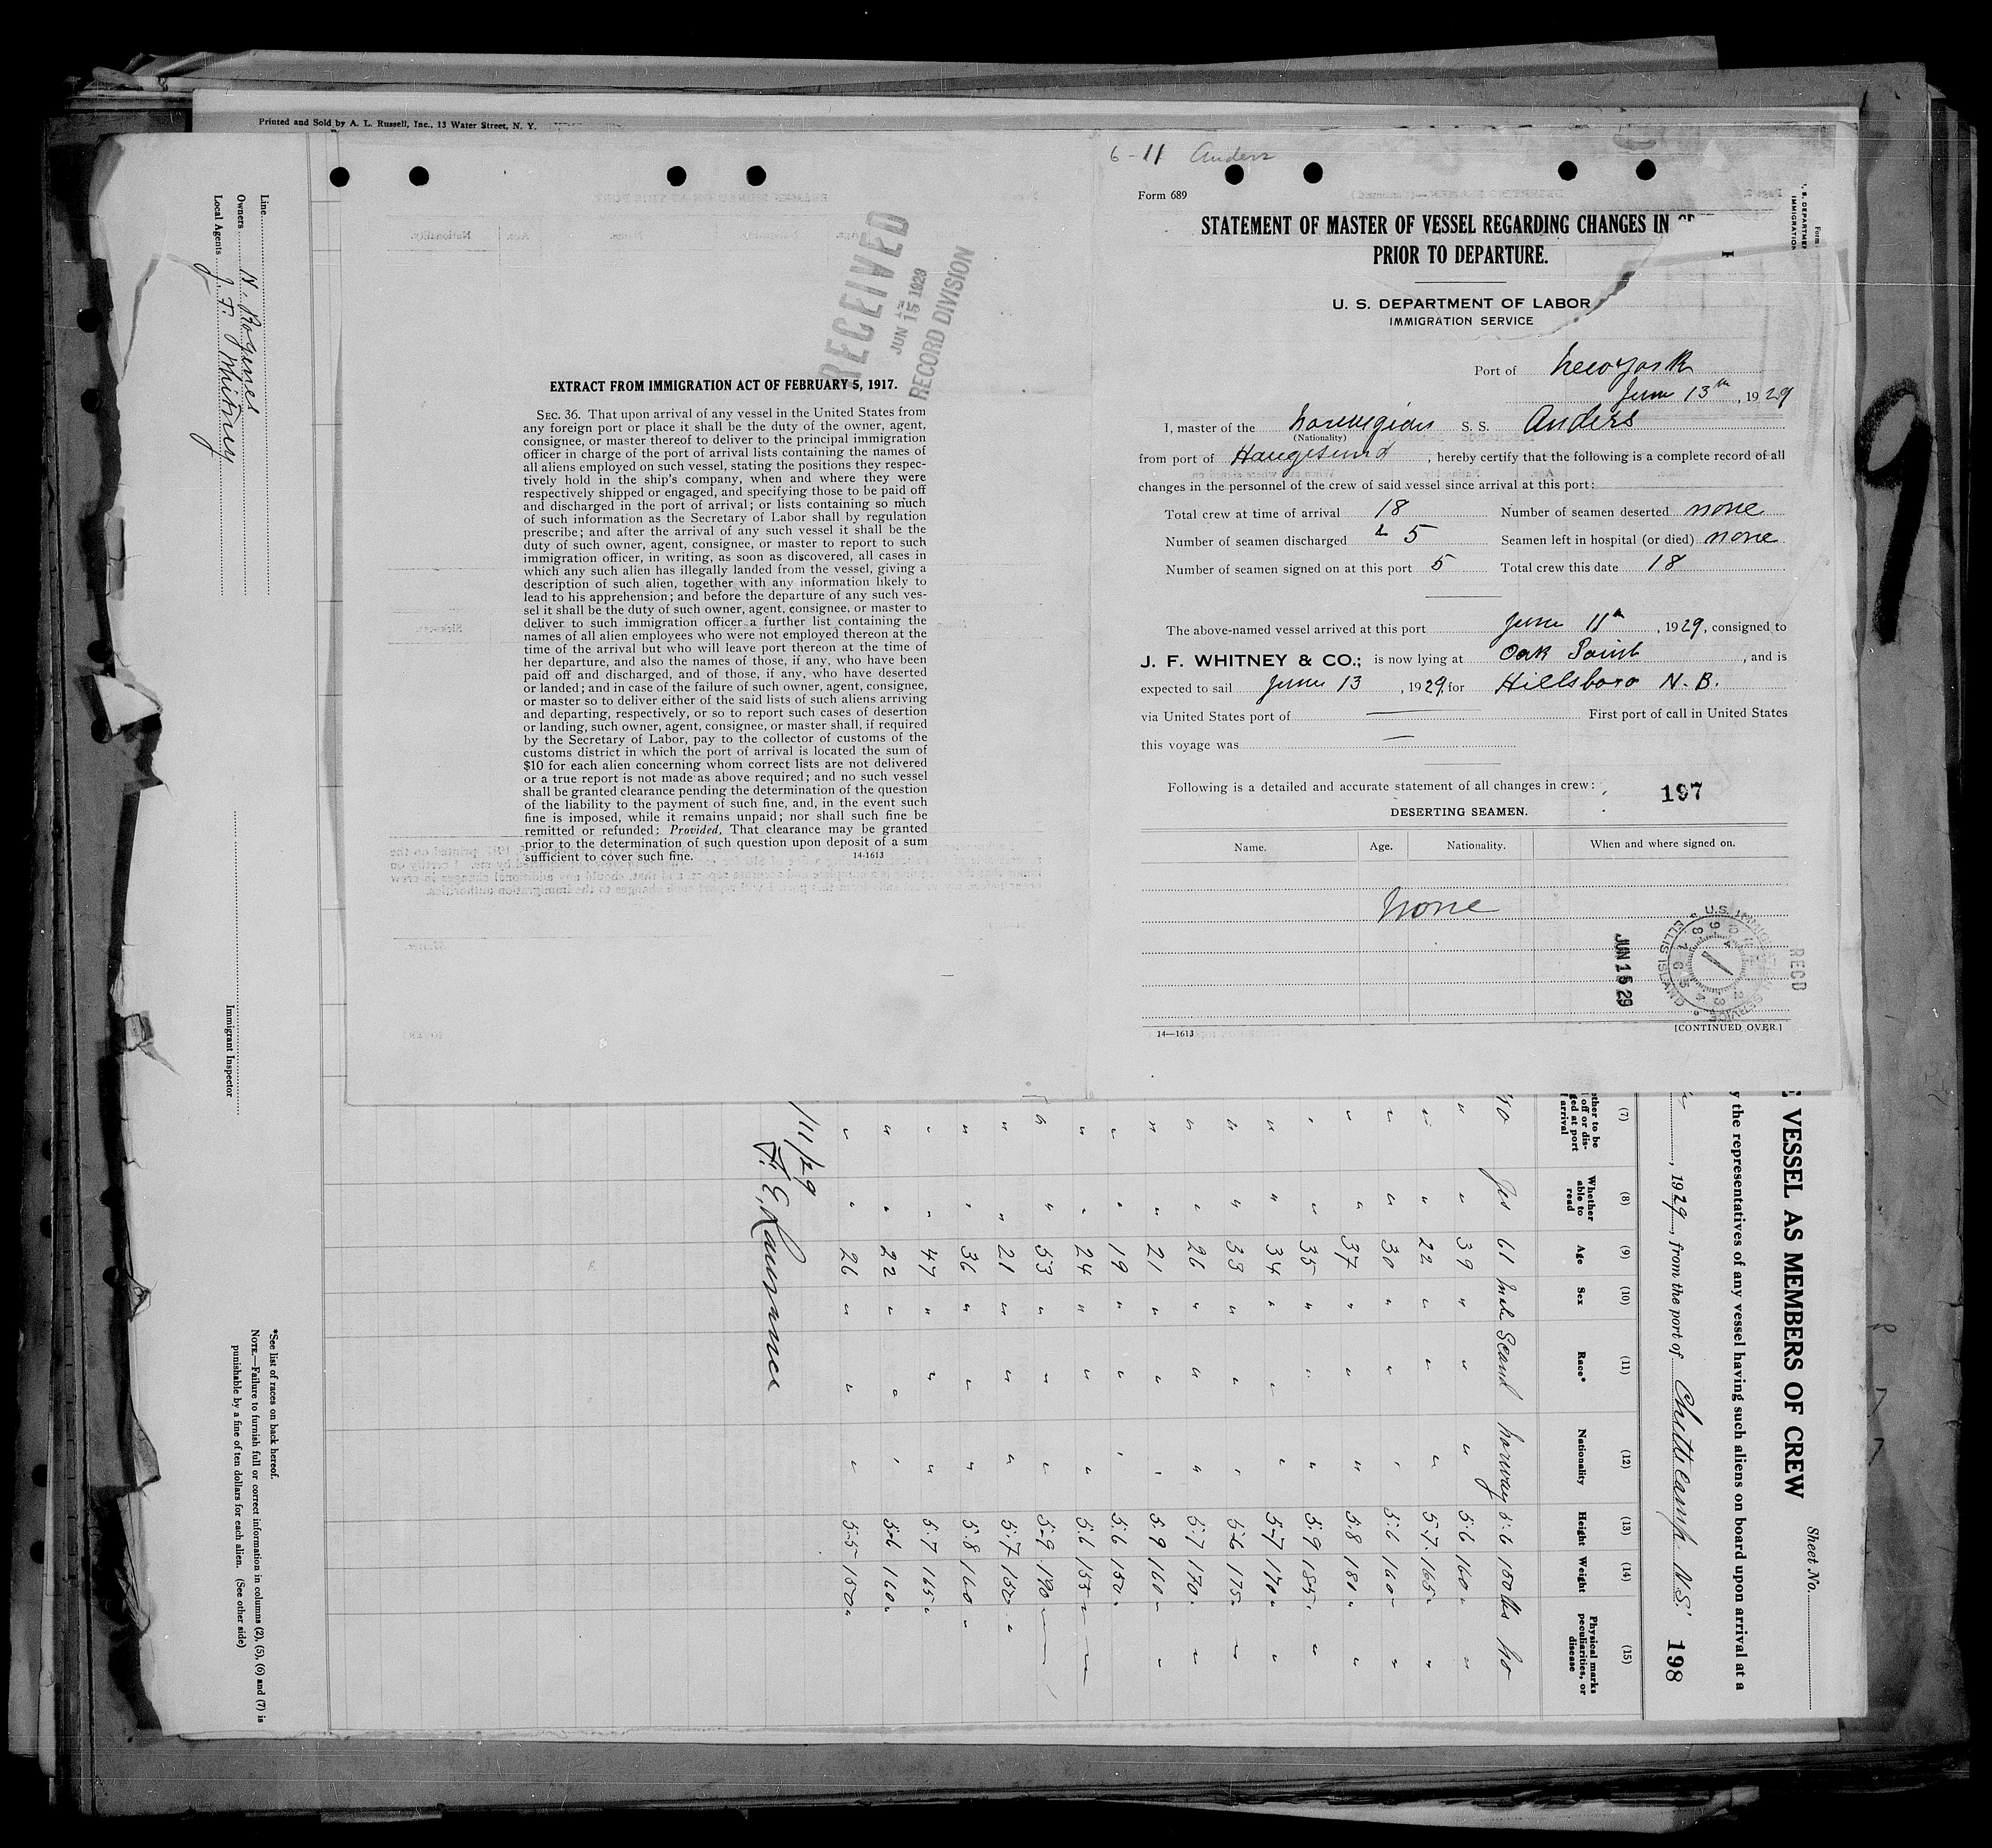 Printed and Sold by A. L. Russell, Inc., 13 Water Street, N. Y.
Line
Owners N. Rogenes
Local Agents J. F. Whitney
Immigrant Inspector
*See list of races on back hereof.
NOTE.—Failure to furnish full or correct information in columns (2), (5), (6) and (7) is
punishable by a fine of ten dollars for each alien. (See other side)
RECEIVED
JUN 15 1929
RECORD DIVISION
EXTRACT FROM IMMIGRATION ACT OF FEBRUARY 5, 1917.
SEC. 36. That upon arrival of any vessel in the United States from
any foreign port or place it shall be the duty of the owner, agent,
consignee, or master thereof to deliver to the principal immigration
officer in charge of the port of arrival lists containing the names of
all aliens employed on such vessel, stating the positions they respec-
tively hold in the ship's company, when and where they were
respectively shipped or engaged, and specifying those to be paid off
and discharged in the port of arrival; or lists containing so much
of such information as the Secretary of Labor shall by regulation
prescribe; and after the arrival of any such vessel it shall be the
duty of such owner, agent, consignee, or master to report to such
immigration officer, in writing, as soon as discovered, all cases in
which any such alien has illegally landed from the vessel, giving a
description of such alien, together with any information likely to
lead to his apprehension; and before the departure of any such ves-
sel it shall be the duty of such owner, agent, consignee, or master to
deliver to such immigration officer a further list containing the
names of all alien employees who were not employed thereon at the
time of the arrival but who will leave port thereon at the time of
her departure, and also the names of those, if any, who have been
paid off and discharged, and of those, if any, who have deserted
or landed; and in case of the failure of such owner, agent, consignee,
or master so to deliver either of the said lists of such aliens arriving
and departing, respectively, or so to report such cases of desertion
or landing, such owner, agent, consignee, or master shall, if required
by the Secretary of Labor, pay to the collector of customs of the
customs district in which the port of arrival is located the sum of
$10 for each alien concerning whom correct lists are not delivered
or a true report is not made as above required; and no such vessel
shall be granted clearance pending the determination of the question
of the liability to the payment of such fine, and, in the event such
fine is imposed, while it remains unpaid; nor shall such fine be
remitted or refunded: Provided, That clearance may be granted
prior to the determination of such question upon deposit of a sum
sufficient to cover such fine. 14-1613
6-11 Anders
Form 689
STATEMENT OF MASTER OF VESSEL REGARDING CHANGES IN
PRIOR TO DEPARTURE.
U. S. DEPARTMENT OF LABOR
IMMIGRATION SERVICE
Port of New York
June 13th, 1929
I, master of the Norwegian S. S. Anders
(Nationality)
from port of Haugesund, hereby certify that the following is a complete record of all
changes in the personnel of the crew of said vessel since arrival at this port:
Total crew at time of arrival 18 Number of seamen deserted none
Number of seamen discharged 5 Seamen left in hospital (or died) none
Number of seamen signed on at this port 5 Total crew this date 18
The above-named vessel arrived at this port June 11th, 1929, consigned to
J. F. WHITNEY & CO.; is now lying at Oak Point, and is
expected to sail June 13, 1929, for Hillsboro N. B.
via United States port of — First port of call in United States
this voyage was —
Following is a detailed and accurate statement of all changes in crew:
197
DESERTING SEAMEN.
Name. Age. Nationality. When and where signed on.
None
U.S. IMMIGRATION SERVICE
ELLIS ISLAND
JUN 15 29
RECD
14—1613 [CONTINUED OVER.]
9
Sheet No.
VESSEL AS MEMBERS OF CREW
y the representatives of any vessel having such aliens on board upon arrival at a
, 1929, from the port of Chetticamp N.S. 198
(7) (8) (9) (10) (11) (12) (13) (14) (15)
Whether able to read Age Sex Race* Nationality Height Weight Physical marks peculiarities, or disease
no yes 61 Male Scand Norway 5.6 150 lbs no
" " 39 " " " 5.6 160 " "
" " 22 " " " 5.7 165 " "
" " 30 " " " 5.6 160 " "
" " 37 " " " 5.8 180 " "
" " 35 " " " 5.9 185 " "
" " 34 " " " 5.7 170 " "
" " 33 " " " 5.6 175 " "
" " 26 " " " 5.7 170 " "
" " 21 " " " 5.9 160 " "
" " 19 " " " 5.6 150 "
" " 24 " " " 5.6 155 "
" " 53 " " " 5.9 190 "
" " 21 " " " 5.7 150 " "
" " 36 " " " 5.8 160 " "
" " 47 " " " 5.7 165 "
" " 22 " " " 5.6 160 "
" " 26 " " " 5.5 150 "
/11/29